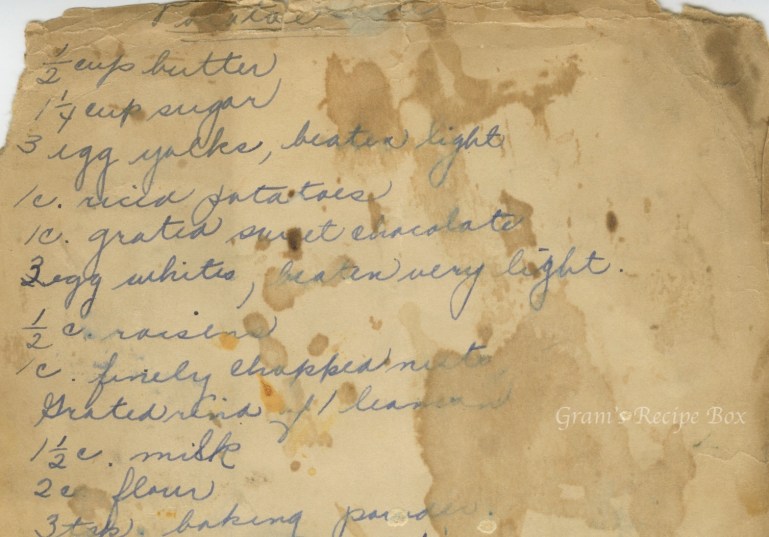 Potatoe
1/2 cup butter
1 1/4 cup sugar
3 egg yolks, beaten light
1c. riced potatoes
1c. grated sweet chocolate
3 egg whites, beaten very light.
1/2 c. raisens
1c. finely chopped nuts,
Grated rind of 1 leamon
Gram's Recipe Box
1 1/2 c. milk
2c flour
3 tsp. baking powder.